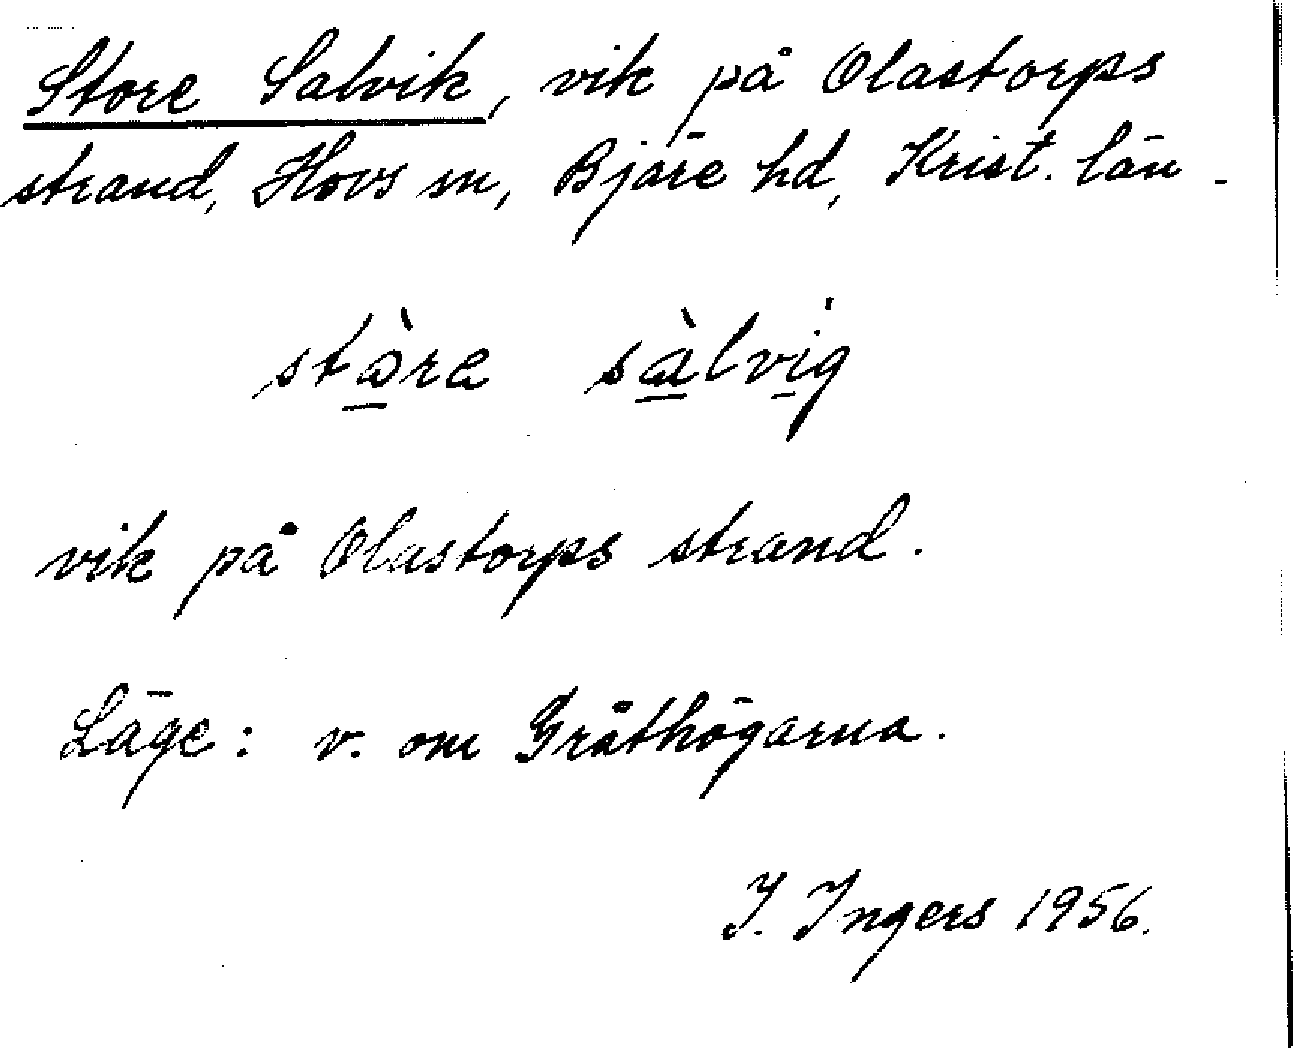 Store Salvik, vik på Olastorps
strand, Hovs sn, Bjäre hd, Krist. län.
stàre sàlvig
vik på Olastorps strand.
Läge: v. om Gråthögarna.
I. Ingers 1956.